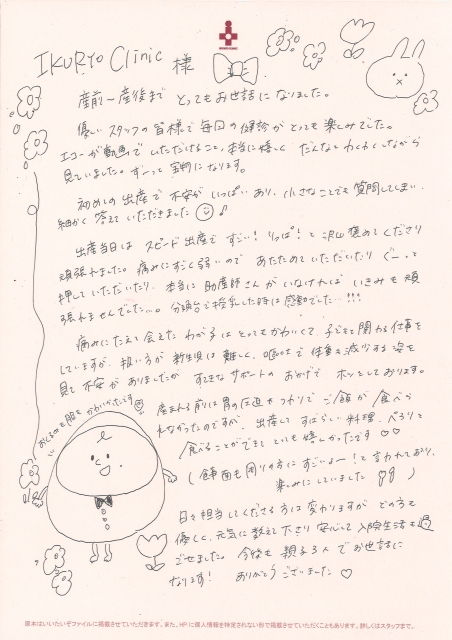 IKURYO CLINIC
IKURYO Clinic 様
産前〜産後まで とってもお世話になりました。
優しいスタッフの皆様で毎回の健診がとっても楽しみでした。
エコーが動画でいただけること、本当に嬉しく だんなとわくわくしながら
見ていました。ずーっと宝物になります。
初めての出産で 不安がいっぱいあり、小さなことでも質問してしまい、
細かく答えていただきました♪
出産当日は スピード出産で すごい! りっぱ! と沢山褒めてくださり
頑張れました。痛みにすごく弱いので あたためていただいたり ぐーっと
押していただいたり、本当に助産師さんがいなければ いきみも頑
張れませんでした…。分娩台で授乳した時は感動でした…!!!
痛みにたえて会えた わが子は とってもかわいくて、子どもと関わる仕事を
していますが、扱い方が 新生児は難しく、 体重も減少する姿を
見て 不安がありましたが すてきなサポートの おかげで ホッとしております。
おくるみも服もかわいかったです
に
産まれる前は胃の圧迫やつわりで ご飯が 食べら
れなかったのですが、出産して すばらしい料理、ぺろりと
食べることができて とても嬉しかったです♡♡
(食事面も周りの方に すごいよー! と言われており、
楽しみにしていました )
日々担当してくださる方は変わりますが どの方も
優しく、元気に教えて下さり 安心して入院生活も過
ごせました。今後も 親子3人で お世話に
なります! ありがとうございました♡
原本はいいたいぞファイルに掲載させていただきます。また、HPに個人情報を特定されない形で掲載させていただくこともあります。詳しくはスタッフまで。